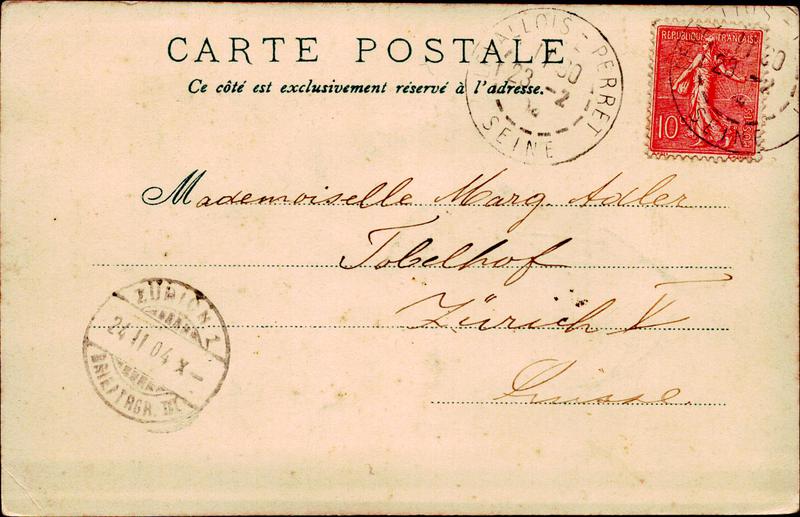 CARTE POSTALE
Ce côté est exclusivement réservé à l'adresse.
ALLOIS - PERRET
23 -2
SEINE
REPUBLIQUE FRANÇAISE
10
POSTES
Mademoiselle Marg. Adler
Tobelhof
Zürich V
Suisse.
ZÜRICH 1
24 II 04 X -
BRIEFTRGR. III